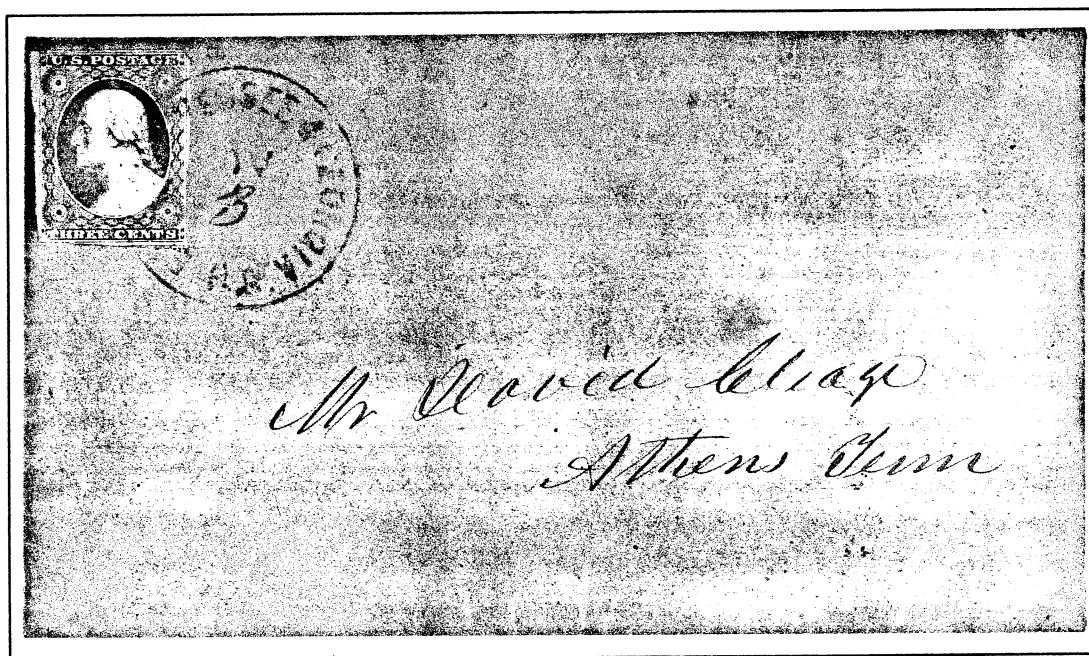 U.S. POSTAGE
THREE CENTS
& GEORGIA
Mr David Cleage
Athens Tenn